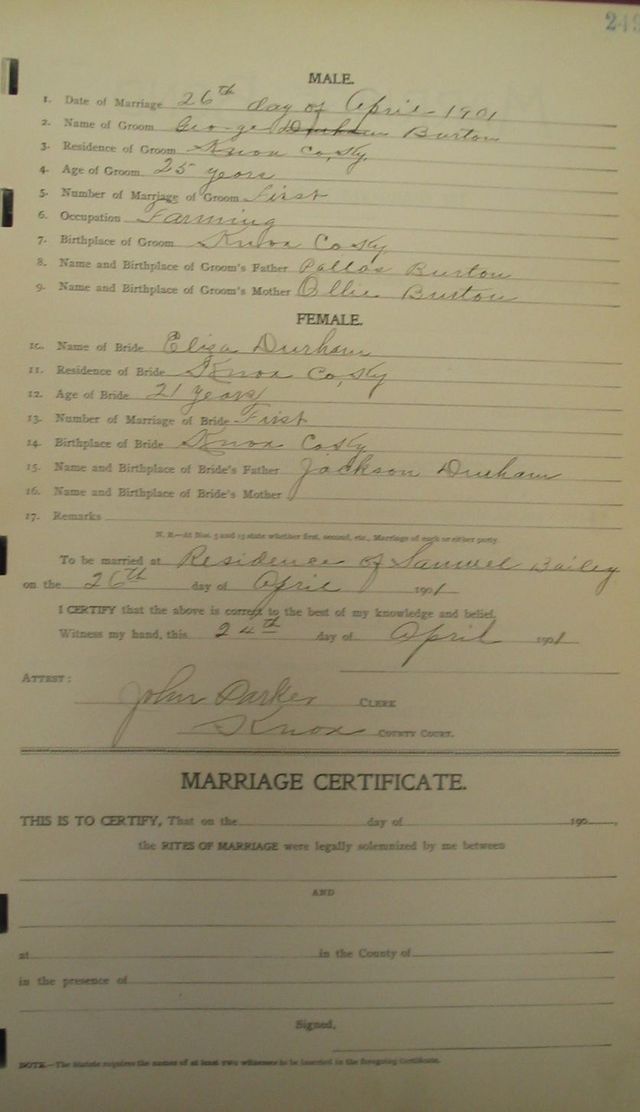 249
MALE.
1. Date of Marriage 26th day of April 1901
2. Name of Groom George Durham Burton
3. Residence of Groom Knox Co, Ky,
4. Age of Groom 25 years
5. Number of Marriage of Groom First
6. Occupation Farming
7. Birthplace of Groom Knox Co Ky
8. Name and Birthplace of Groom's Father Pallas Burton
9. Name and Birthplace of Groom's Mother Ollie Burton
FEMALE.
10. Name of Bride Eliza Durham
11. Residence of Bride Knox Co, Ky
12. Age of Bride 21 years
13. Number of Marriage of Bride First
14. Birthplace of Bride Knox Co Ky
15. Name and Birthplace of Bride's Father Jackson Durham
16. Name and Birthplace of Bride's Mother
17. Remarks
N. B.—At Nos. 5 and 13 state whether first, second, etc., Marriage of each or either party.
To be married at Residence of Samuel Bailey
on the 26th day of April 1901
I CERTIFY that the above is correct to the best of my knowledge and belief.
Witness my hand, this 24th day of April 1901
ATTEST:
John Parker CLERK
Knox COUNTY COURT.
MARRIAGE CERTIFICATE.
THIS IS TO CERTIFY, That on the day of 190
the RITES OF MARRIAGE were legally solemnized by me between
AND
at in the County of
in the presence of
Signed,
NOTE.—The Statute requires the names of at least two witnesses to be inserted in the foregoing Certificate.